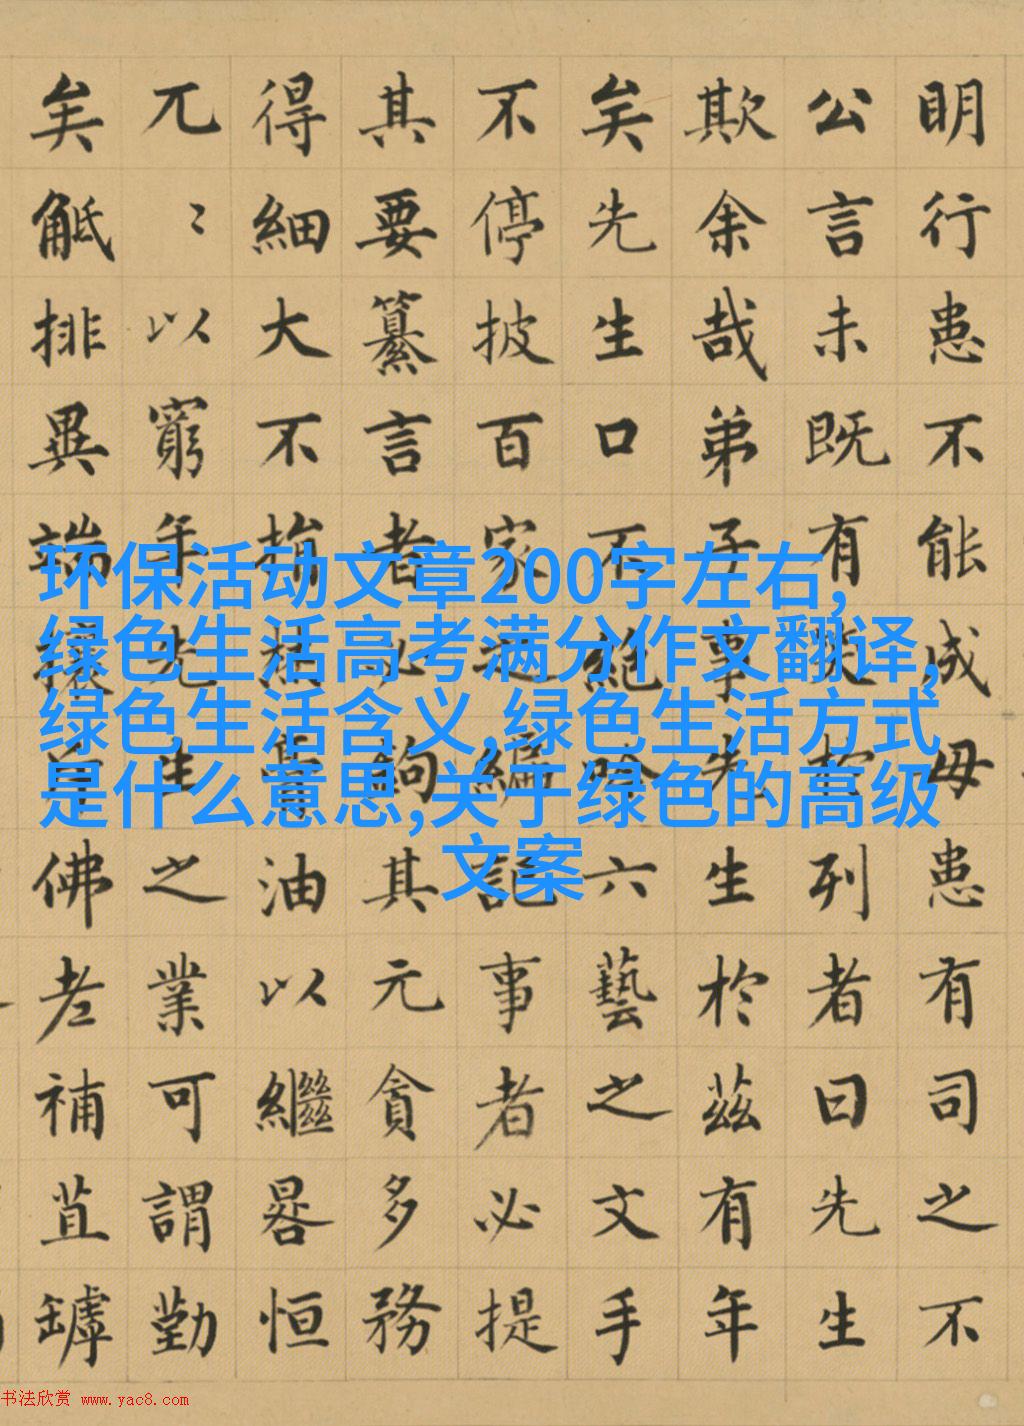 明行患不能成毋患有司之不
公言未既有笑於列者曰先生
欺余哉弟子事先生於茲有年
矣先生口不絶吟六藝之文手
不停披百家之編記事者必提
其要纂言者必鉤其元貪多務
得細大不捐焚膏油以繼晷恒
兀〻以窮年先生之業可謂勤
矣觝排異端攘斥佛老補苴罅
环保活动文章200字左右,
绿色生活高考满分作文翻译,
绿色生活含义,绿色生活方式
是什么意思,关于绿色的高级
文案
书法欣赏 www.yac8.com